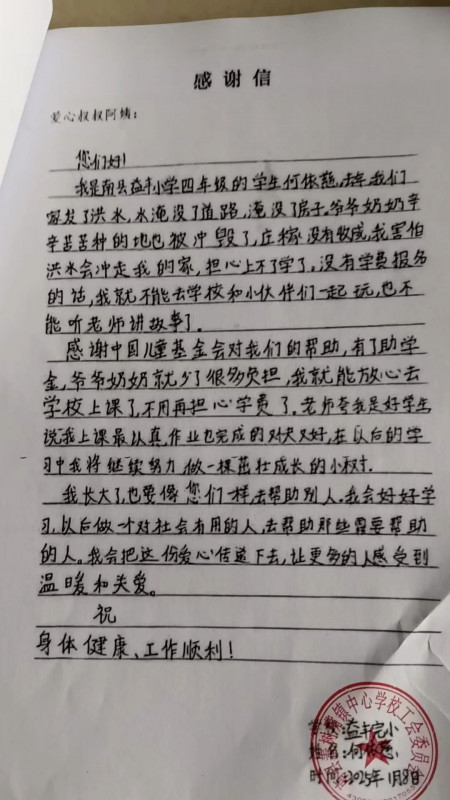 感谢信
爱心叔叔阿姨：
您们好！
我是南县益丰小学四年级的学生何依慈，去年我们
家发了洪水，水淹没了道路，淹没了房子，爷爷奶奶辛
辛苦苦种的地也被冲毁了，庄稼没有收成，我害怕
洪水会冲走我的家，担心上不了学了，没有学费报名
的话，我就不能去学校和小伙伴们一起玩，也不
能听老师讲故事了。
感谢中国儿童基金会对我们的帮助，有了助学
金，爷爷奶奶就少了很多负担，我就能放心去
学校上课了，不用再担心学费了。老师夸我是好学生
说我上课最认真，作业也完成的又快又好，在以后的学
习中我将继续努力，做一棵茁壮成长的小树。
我长大了，也要像您们一样去帮助别人。我会好好学
习，以后做一个对社会有用的人，去帮助那些需要帮助
的人。我会把这份爱心传递下去，让更多的人感受到
温暖和关爱。
祝
身体健康、工作顺利！
益丰完小
姓名：何依慈
时间：2025年1月8日
镇中心学校工会委员会